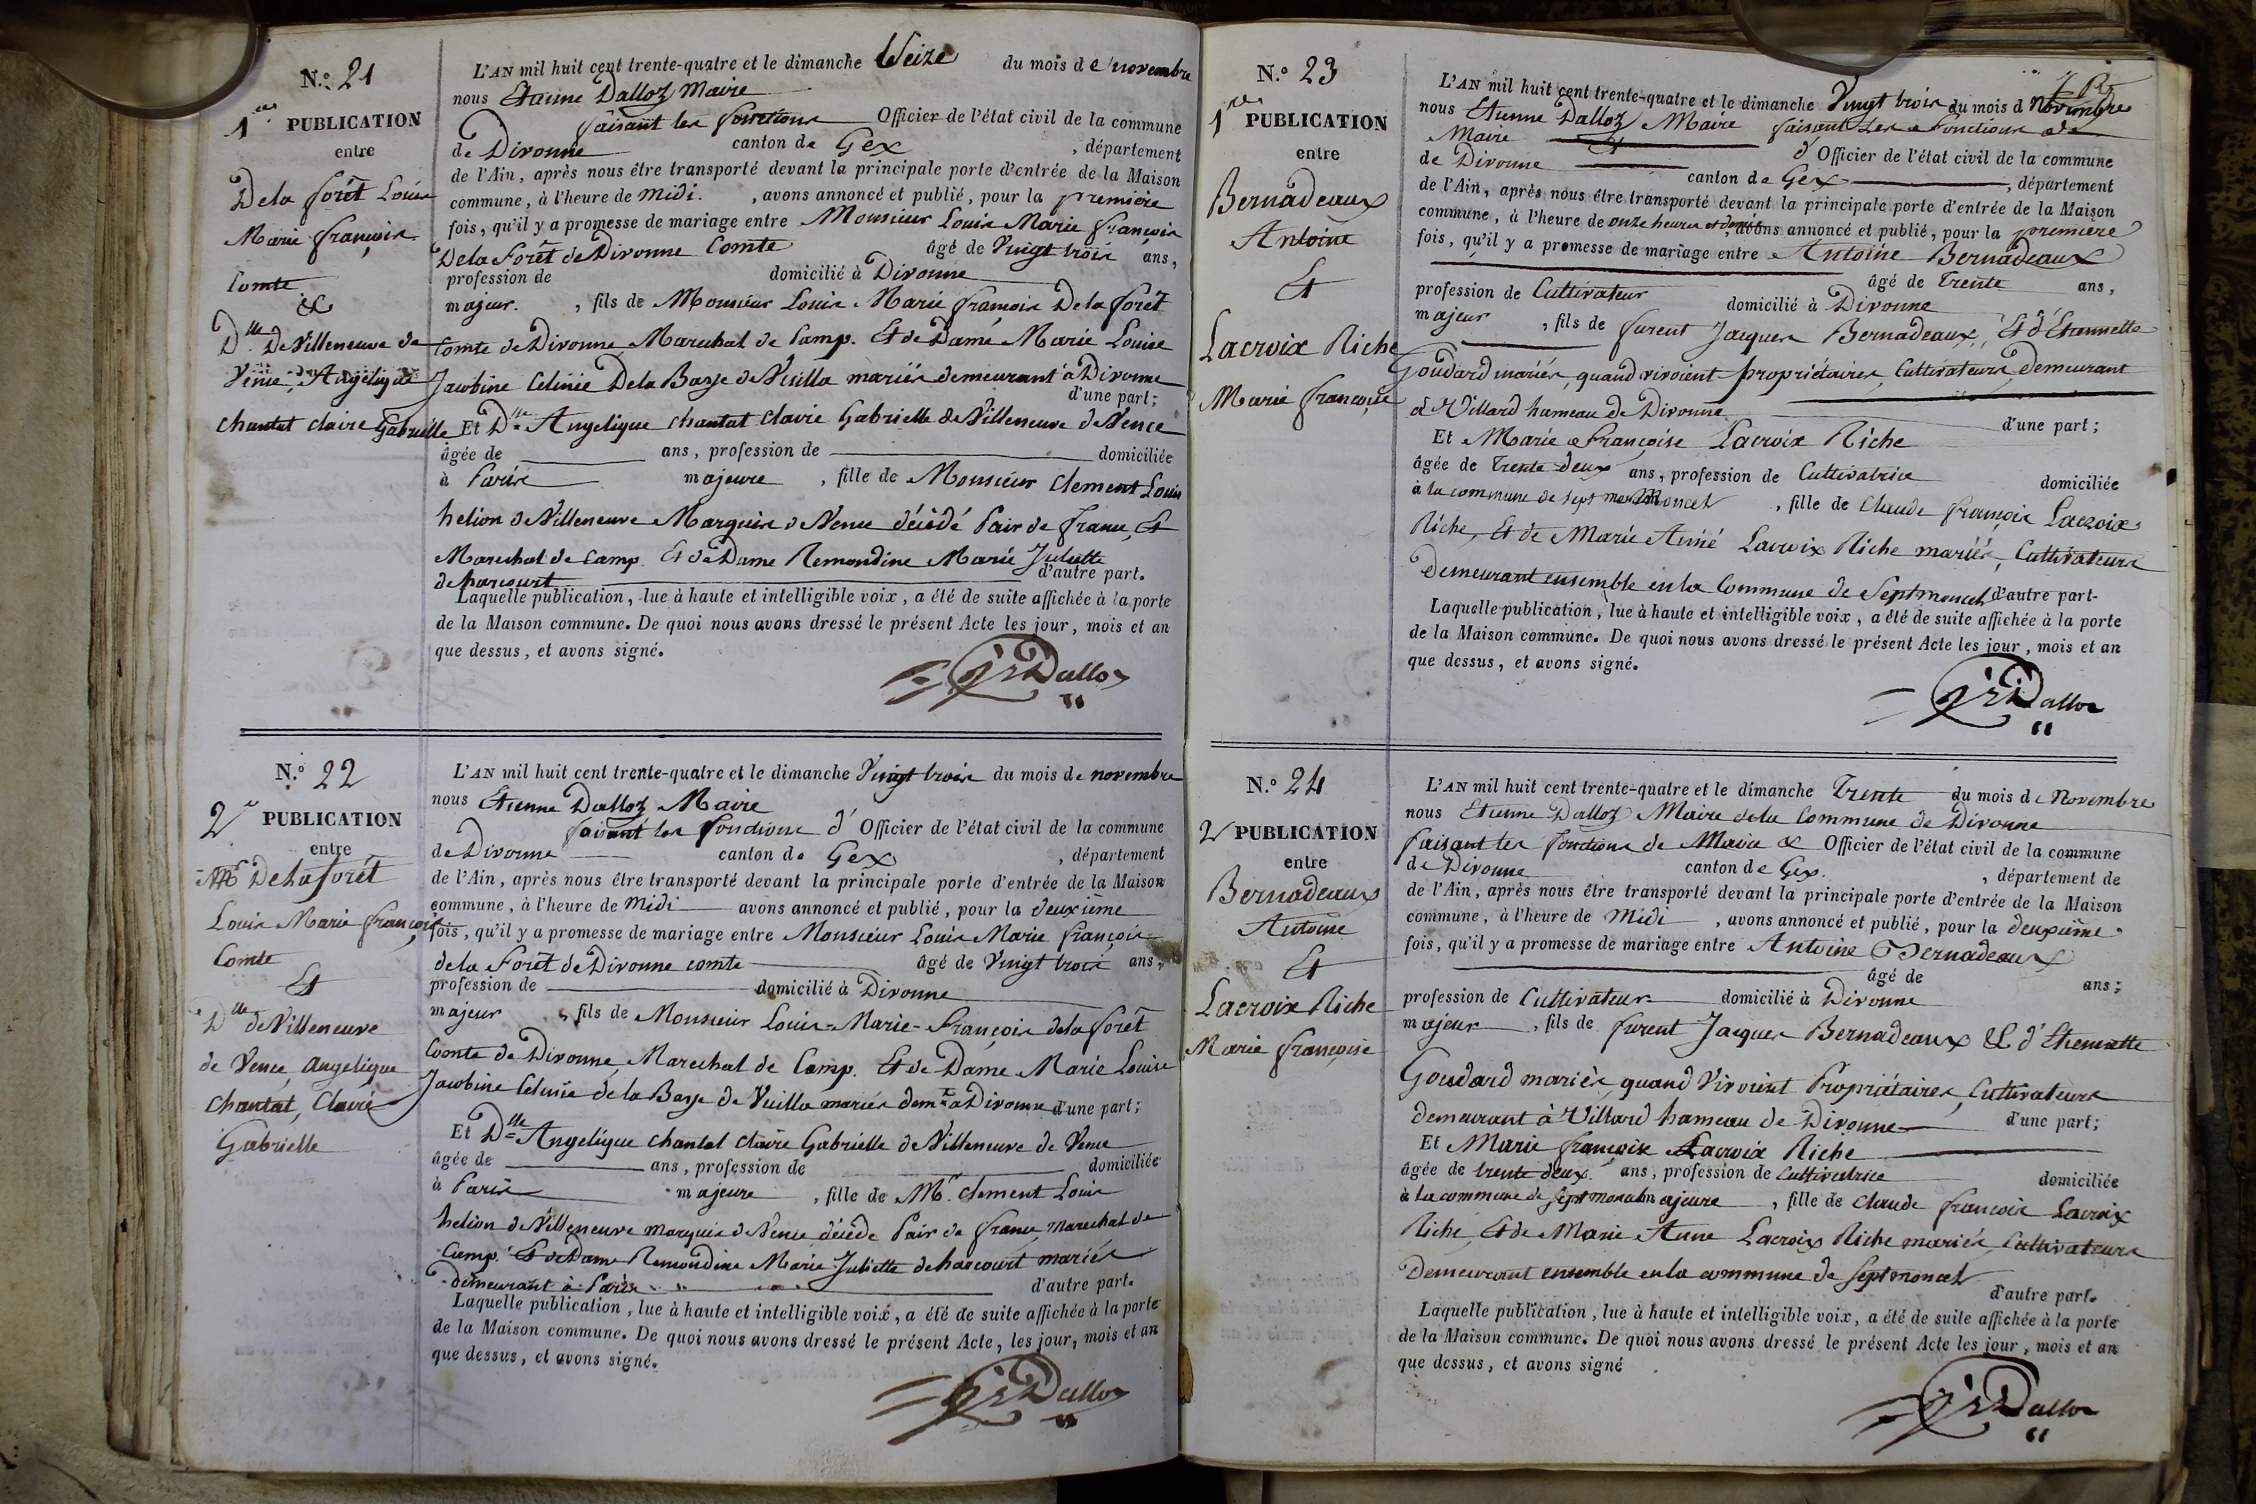 N.º 21
1ere PUBLICATION
entre
De la forêt Louis
Marie françois
Comte
&
Dlle De Villeneuve de
Vence, Angelique
chantat claire Gabrielle
L'AN mil huit cent trente-quatre et le dimanche Seize du mois de novembre
nous Etienne Dalloz Maire
faisant les fonctions Officier de l'état civil de la commune
de Divonne canton de Gex, département
de l'Ain, après nous être transporté devant la principale porte d'entrée de la Maison
commune, à l'heure de midi., avons annoncé et publié, pour la première
fois, qu'il y a promesse de mariage entre Monsieur Louis Marie françois
De la Forêt de Divonne Comte âgé de Vingt trois ans,
profession de domicilié à Divonne
majeur., fils de Monsieur Louis Marie françois De la forêt
Comte de Divonne, Marechal de Camp. Et de Dame Marie Louise
Jacobine Celinie De la Baye de Visilla mariés demeurant à Divonne
d'une part;
Et Dlle Angelique chantat claire Gabrielle de Villeneuve de Vence
âgée de ans, profession de domiciliée
à Paris majeure, fille de Monsieur Clement Louis
helion de Villeneuve Marquis de Vence décédé Pair de france, Et
Marechal de Camp. Et de Dame Remondine Marie Juliette
de harcourt d'autre part.
Laquelle publication, lue à haute et intelligible voix, a été de suite affichée à la porte
de la Maison commune. De quoi nous avons dressé le présent Acte les jour, mois et an
que dessus, et avons signé.
Dalloz
N.º 22
2e PUBLICATION
entre
Mr De La forêt
Louis Marie françois
Comte
Et
Dlle de Villeneuve
de Vence, Angelique
Chantat, Claire
Gabrielle
L'AN mil huit cent trente-quatre et le dimanche Vingt trois du mois de novembre
nous Etienne Dalloz Maire
faisant les fonctions d' Officier de l'état civil de la commune
de Divonne canton de Gex, département
de l'Ain, après nous être transporté devant la principale porte d'entrée de la Maison
commune, à l'heure de Midi avons annoncé et publié, pour la deuxième
fois, qu'il y a promesse de mariage entre Monsieur Louis Marie françois
de la Forêt de Divonne comte âgé de Vingt trois ans,
profession de domicilié à Divonne
majeur, fils de Monsieur Louis-Marie-François de la forêt
Comte de Divonne, Marechal de Camp. Et de Dame Marie Louise
Jacobine Celinie de la Baye de Vuilla mariés demt à Divonne d'une part;
Et Dlle Angelique chantat claire Gabrielle de Villeneuve de Vence
âgée de ans, profession de domiciliée
à Paris majeure, fille de Mr. Clement Louis
helion de Villeneuve marquis de Vence décédé Pair de france, marechal de
Camp. Et de Dame Remondine Marie Juliette de harcourt mariés
demeurant à Paris d'autre part.
Laquelle publication, lue à haute et intelligible voix, a été de suite affichée à la porte
de la Maison commune. De quoi nous avons dressé le présent Acte, les jour, mois et an
que dessus, et avons signé.
Dalloz
N.º 23
1re PUBLICATION
entre
Bernadeaux
Antoine
Et
Lacroix Riche
Marie françoise
L'AN mil huit cent trente-quatre et le dimanche Vingt trois du mois d Novembre
nous Etienne Dalloz Maire faisant les fonctions de
Maire d'Officier de l'état civil de la commune
de Divonne canton de Gex, département
de l'Ain, après nous être transporté devant la principale porte d'entrée de la Maison
commune, à l'heure de onze heures et demie, avons annoncé et publié, pour la première
fois, qu'il y a promesse de mariage entre Antoine Bernadeaux
âgé de Trente ans,
profession de Cultivateur domicilié à Divonne
majeur, fils de furent Jacques Bernadeaux, Et d'Etiennette
Goudard mariés, quand vivoient propriétaires, Cultivateurs, Demeurant
à Villard hameau de Divonne d'une part;
Et Marie Françoise Lacroix Riche
âgée de Trente deux ans, profession de Cultivatrice domiciliée
à la commune de Septmoncel, fille de Claude françois Lacroix
Riche, Et de Marie Anne Lacroix Riche mariés, Cultivateurs
Demeurant ensemble en la Commune de Septmoncel d'autre part.
Laquelle publication, lue à haute et intelligible voix, a été de suite affichée à la porte
de la Maison commune. De quoi nous avons dressé le présent Acte les jour, mois et an
que dessus, et avons signé.
Dalloz
N.º 24
2 PUBLICATION
entre
Bernadeaux
Antoine
Et
Lacroix Riche
Marie françoise
L'AN mil huit cent trente-quatre et le dimanche Trente du mois de Novembre
nous Etienne Dalloz Maire de la Commune de Divonne
faisant les fonctions de Maire & Officier de l'état civil de la commune
de Divonne canton de Gex., département de
de l'Ain, après nous être transporté devant la principale porte d'entrée de la Maison
commune, à l'heure de Midi, avons annoncé et publié, pour la deuxième
fois, qu'il y a promesse de mariage entre Antoine Bernadeaux
âgé de ans;
profession de Cultivateur domicilié à Divonne
majeur, fils de furent Jacques Bernadeaux & d'Etiennette
Goudard mariés, quand Vivoient Propriétaires, Cultivateurs
demeurant à Villard hameau de Divonne d'une part;
Et Marie françoise Lacroix Riche
âgée de trente deux ans, profession de Cultivatrice domiciliée
à la commune de Septmoncel majeure, fille de Claude françois Lacroix
Riche, Et de Marie Anne Lacroix Riche mariés, Cultivateurs
Demeurant ensemble en la commune de Septmoncel
d'autre part.
Laquelle publication, lue à haute et intelligible voix, a été de suite affichée à la porte
de la Maison commune. De quoi nous avons dressé le présent Acte les jour, mois et an
que dessus, et avons signé
Dalloz